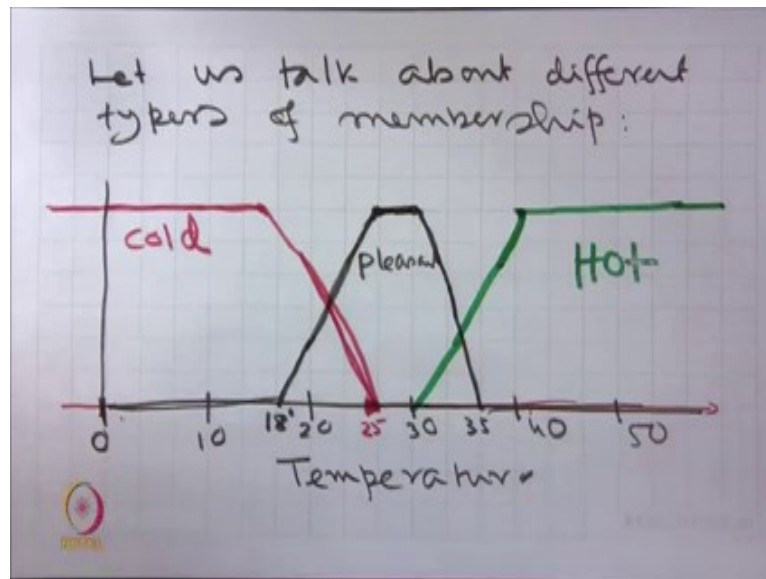 Let us talk about different
types of membership:
cold
pleasant
Hot
0 10 18° 20 25 30 35 40 50
Temperature